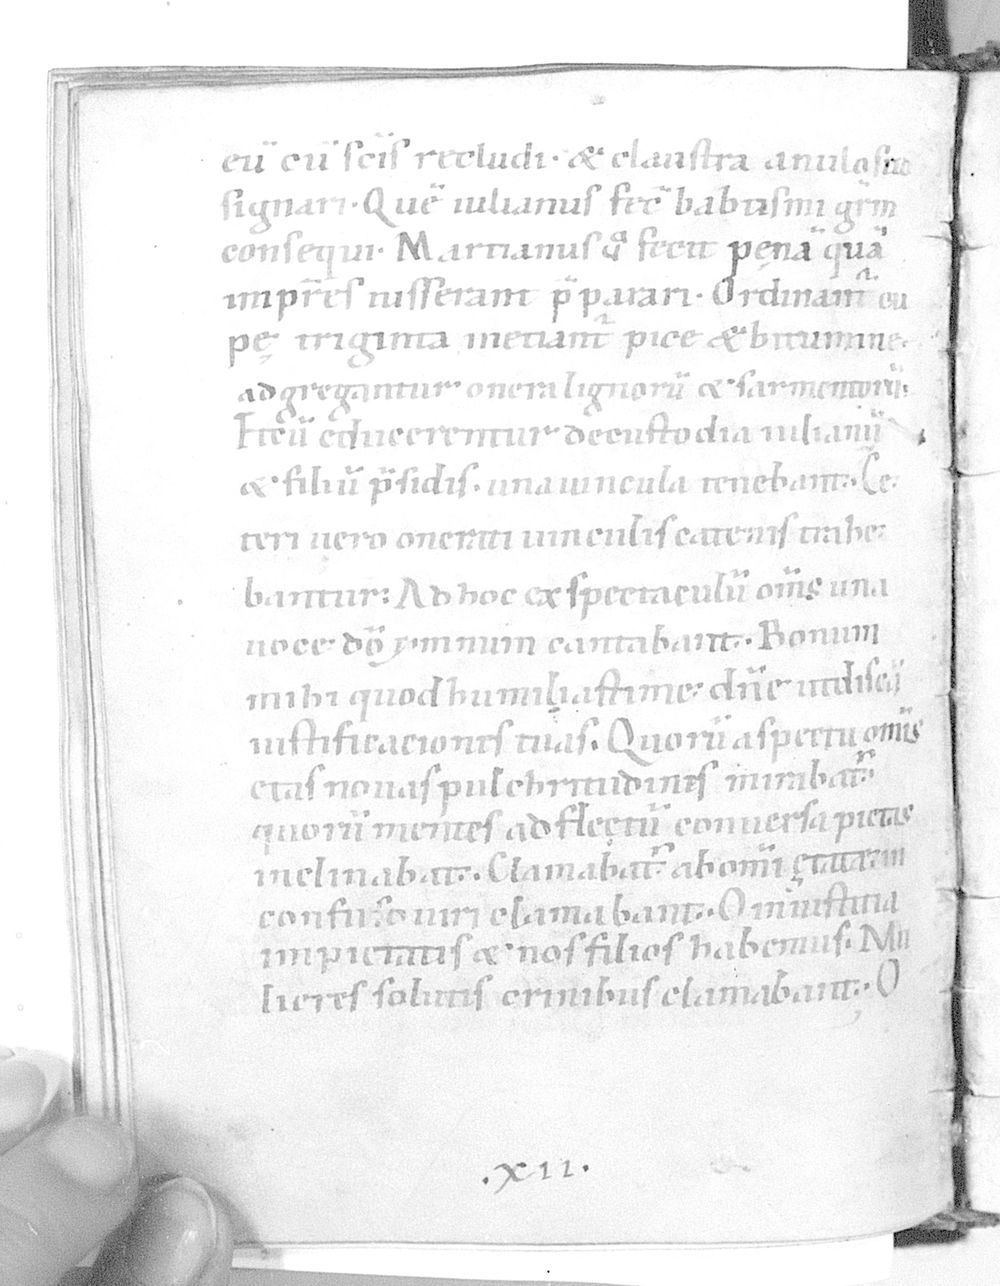 eū cū scis recludi. & claustra anulo suo
signari. Quē iulianus fec̄ babtismi gr̄m
consequi. Martianus q̊ fecit pęnā quā
impr̄es iusserant p̄parari. Ordinant᷑ cu
pę triginta inetiant᷑ pice & bitumine
adgregantur onera lignorū & sarmentorū.
Et cū educerentur de custodia iulianū
& filiū p̄sidis. una uincula tenebant. Ce
teri uero onerati uinculis catenis trahe
bantur: Ad hoc exspectaculū om̄s una
uoce dō ymnum cantabant. Bonum
mihi quod humiliasti me: dn̄e ut discā
iustificaciones tuas. Quorū aspectu om̄is
etas nouas pulchritudines mirabat᷑
quorū mentes ad flęctū conuersa pietas
inclinabat. Clamabat᷑ ab om̄i ętate. in
confuso uiri clamabant. O iniustitia
impietatis & nos filios habemus. Mu
lieres solutis crinibus clamabant. O
.XII.